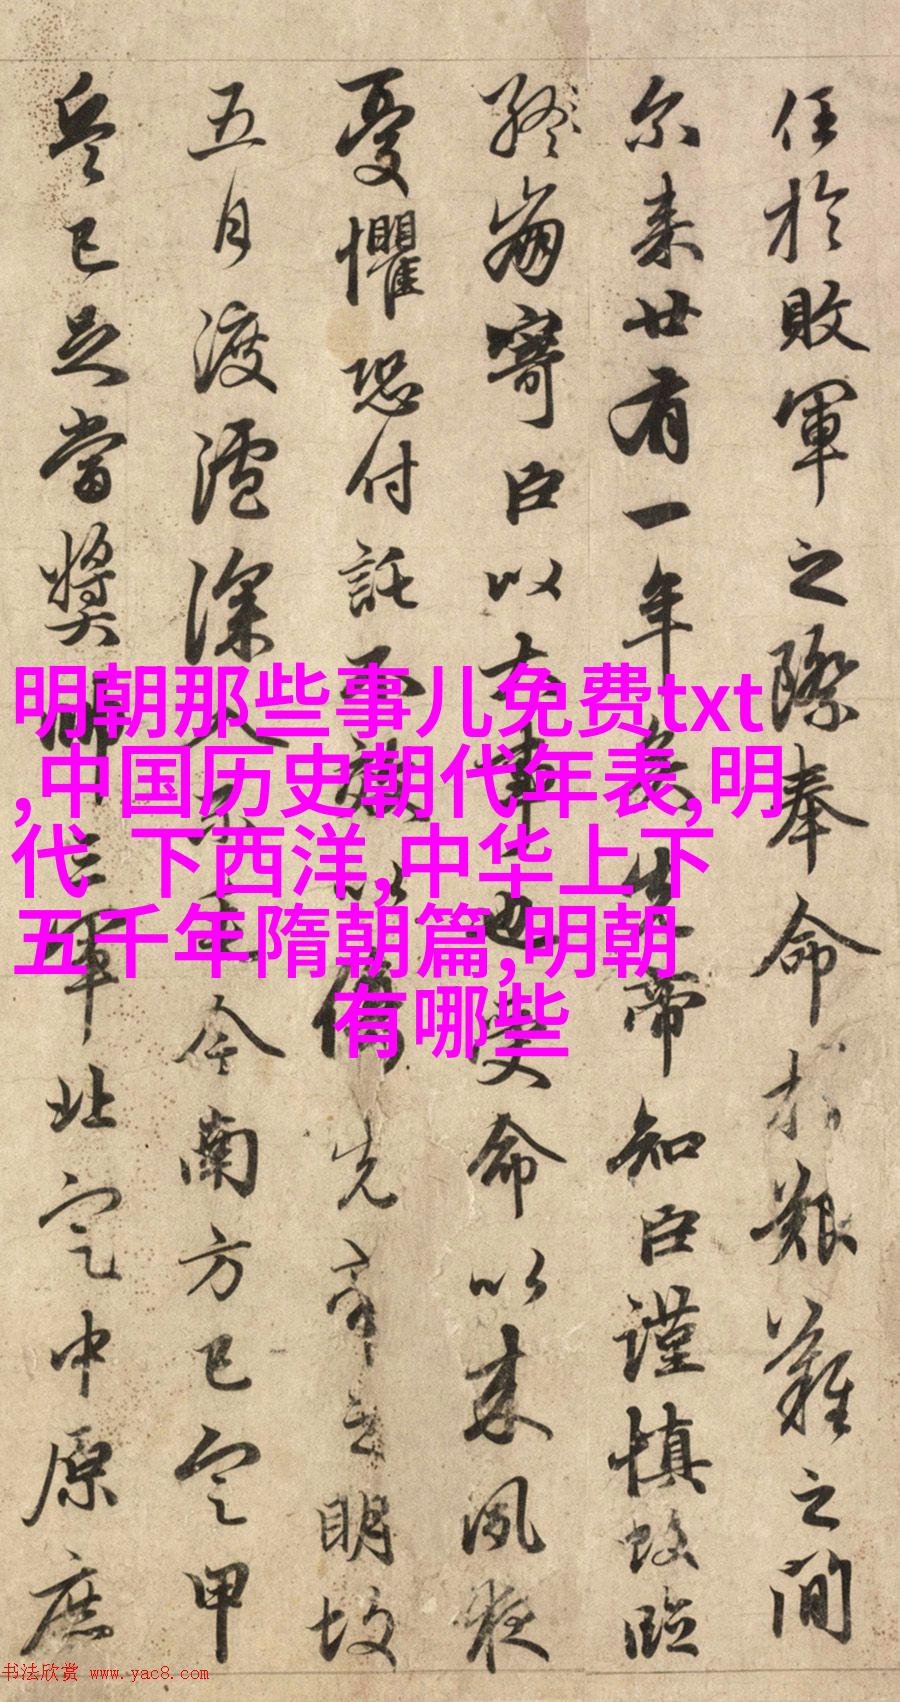 任於敗軍之際奉命於艱難之間
尔来廿有一年矣先帝知臣謹慎故臨
終崩寄臣以大事也受命以来夙夜
憂懼恐付託不效以傷先帝之明故
五月渡瀘深入不毛今南方已定甲
兵已足當獎帥三軍北定中原庶
明朝那些事儿免费txt
,中国历史朝代年表,明
代  下西洋,中华上下
五千年隋朝篇,明朝
有哪些
书法欣赏 www.yac8.com